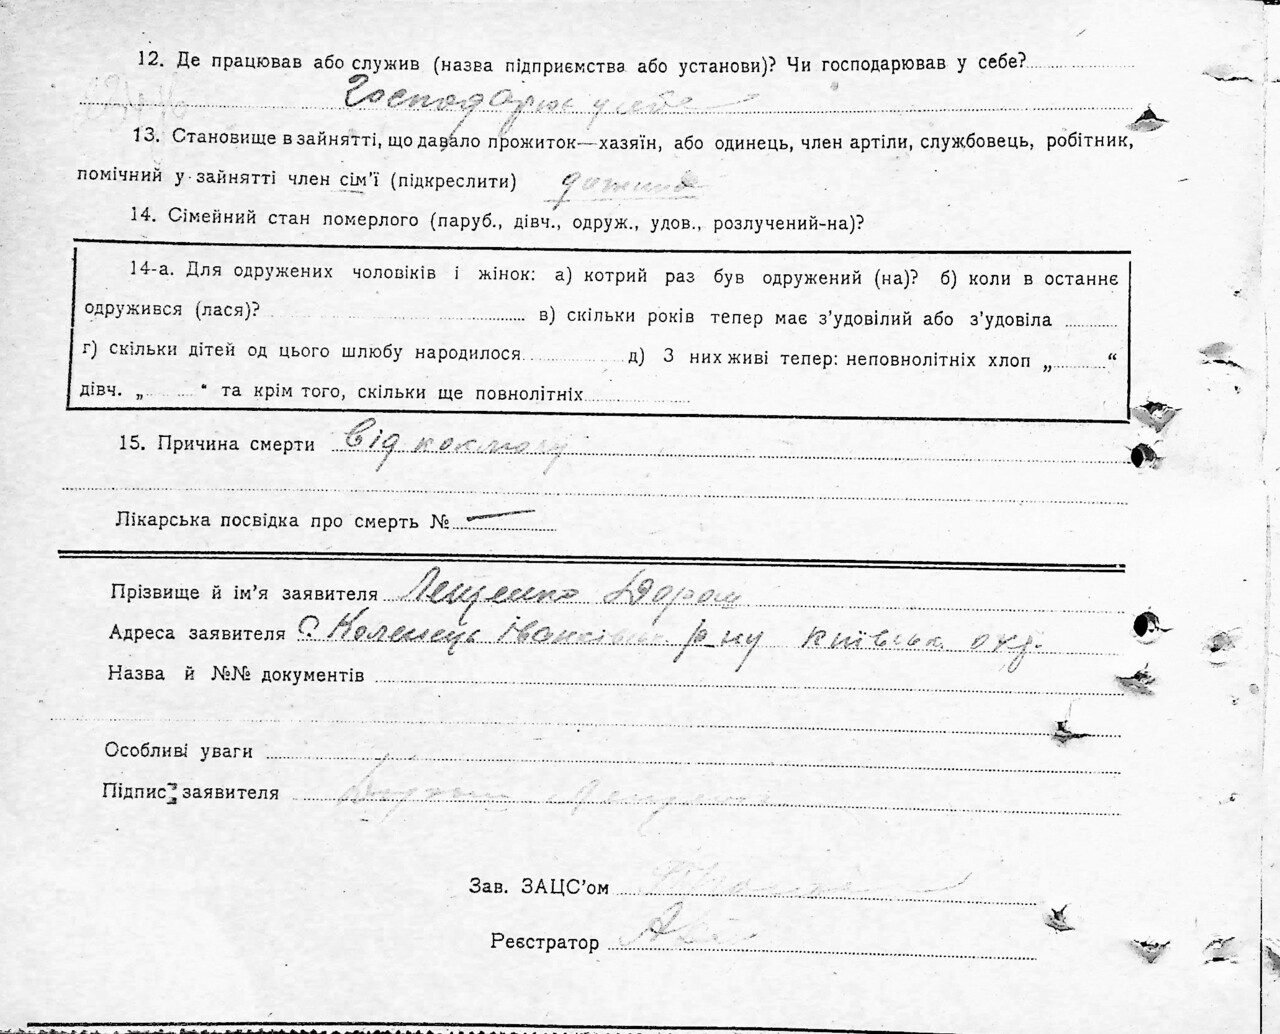 12. Де працював або служив (назва підприємства або установи)? Чи господарював у себе?
Господарює у себе
13. Становище в зайнятті, що давало прожиток—хазяїн, або одинець, член артіли, службовець, робітник,
помічний у зайнятті член сім'ї (підкреслити)
14. Сімейний стан померлого (паруб., дівч., одруж., удов., розлучений-на)?
14-а. Для одружених чоловіків і жінок: а) котрий раз був одружений (на)? б) коли в останнє
одружився (лася)? в) скільки років тепер має з'удовілий або з'удовіла
г) скільки дітей од цього шлюбу народилося д) З них живі тепер: неповнолітніх хлоп „ “
дівч. „ “ та крім того, скільки ще повнолітніх
15. Причина смерти Від коклюшу
Лікарська посвідка про смерть № —
Прізвище й ім'я заявителя Лещенко Дорош
Адреса заявителя С. Коленець Іванківськ р-ну Київськ. окр.
Назва й №№ документів
Особливі уваги
Підпис заявителя Дорош Лещенко
Зав. ЗАЦС'ом
Реєстратор